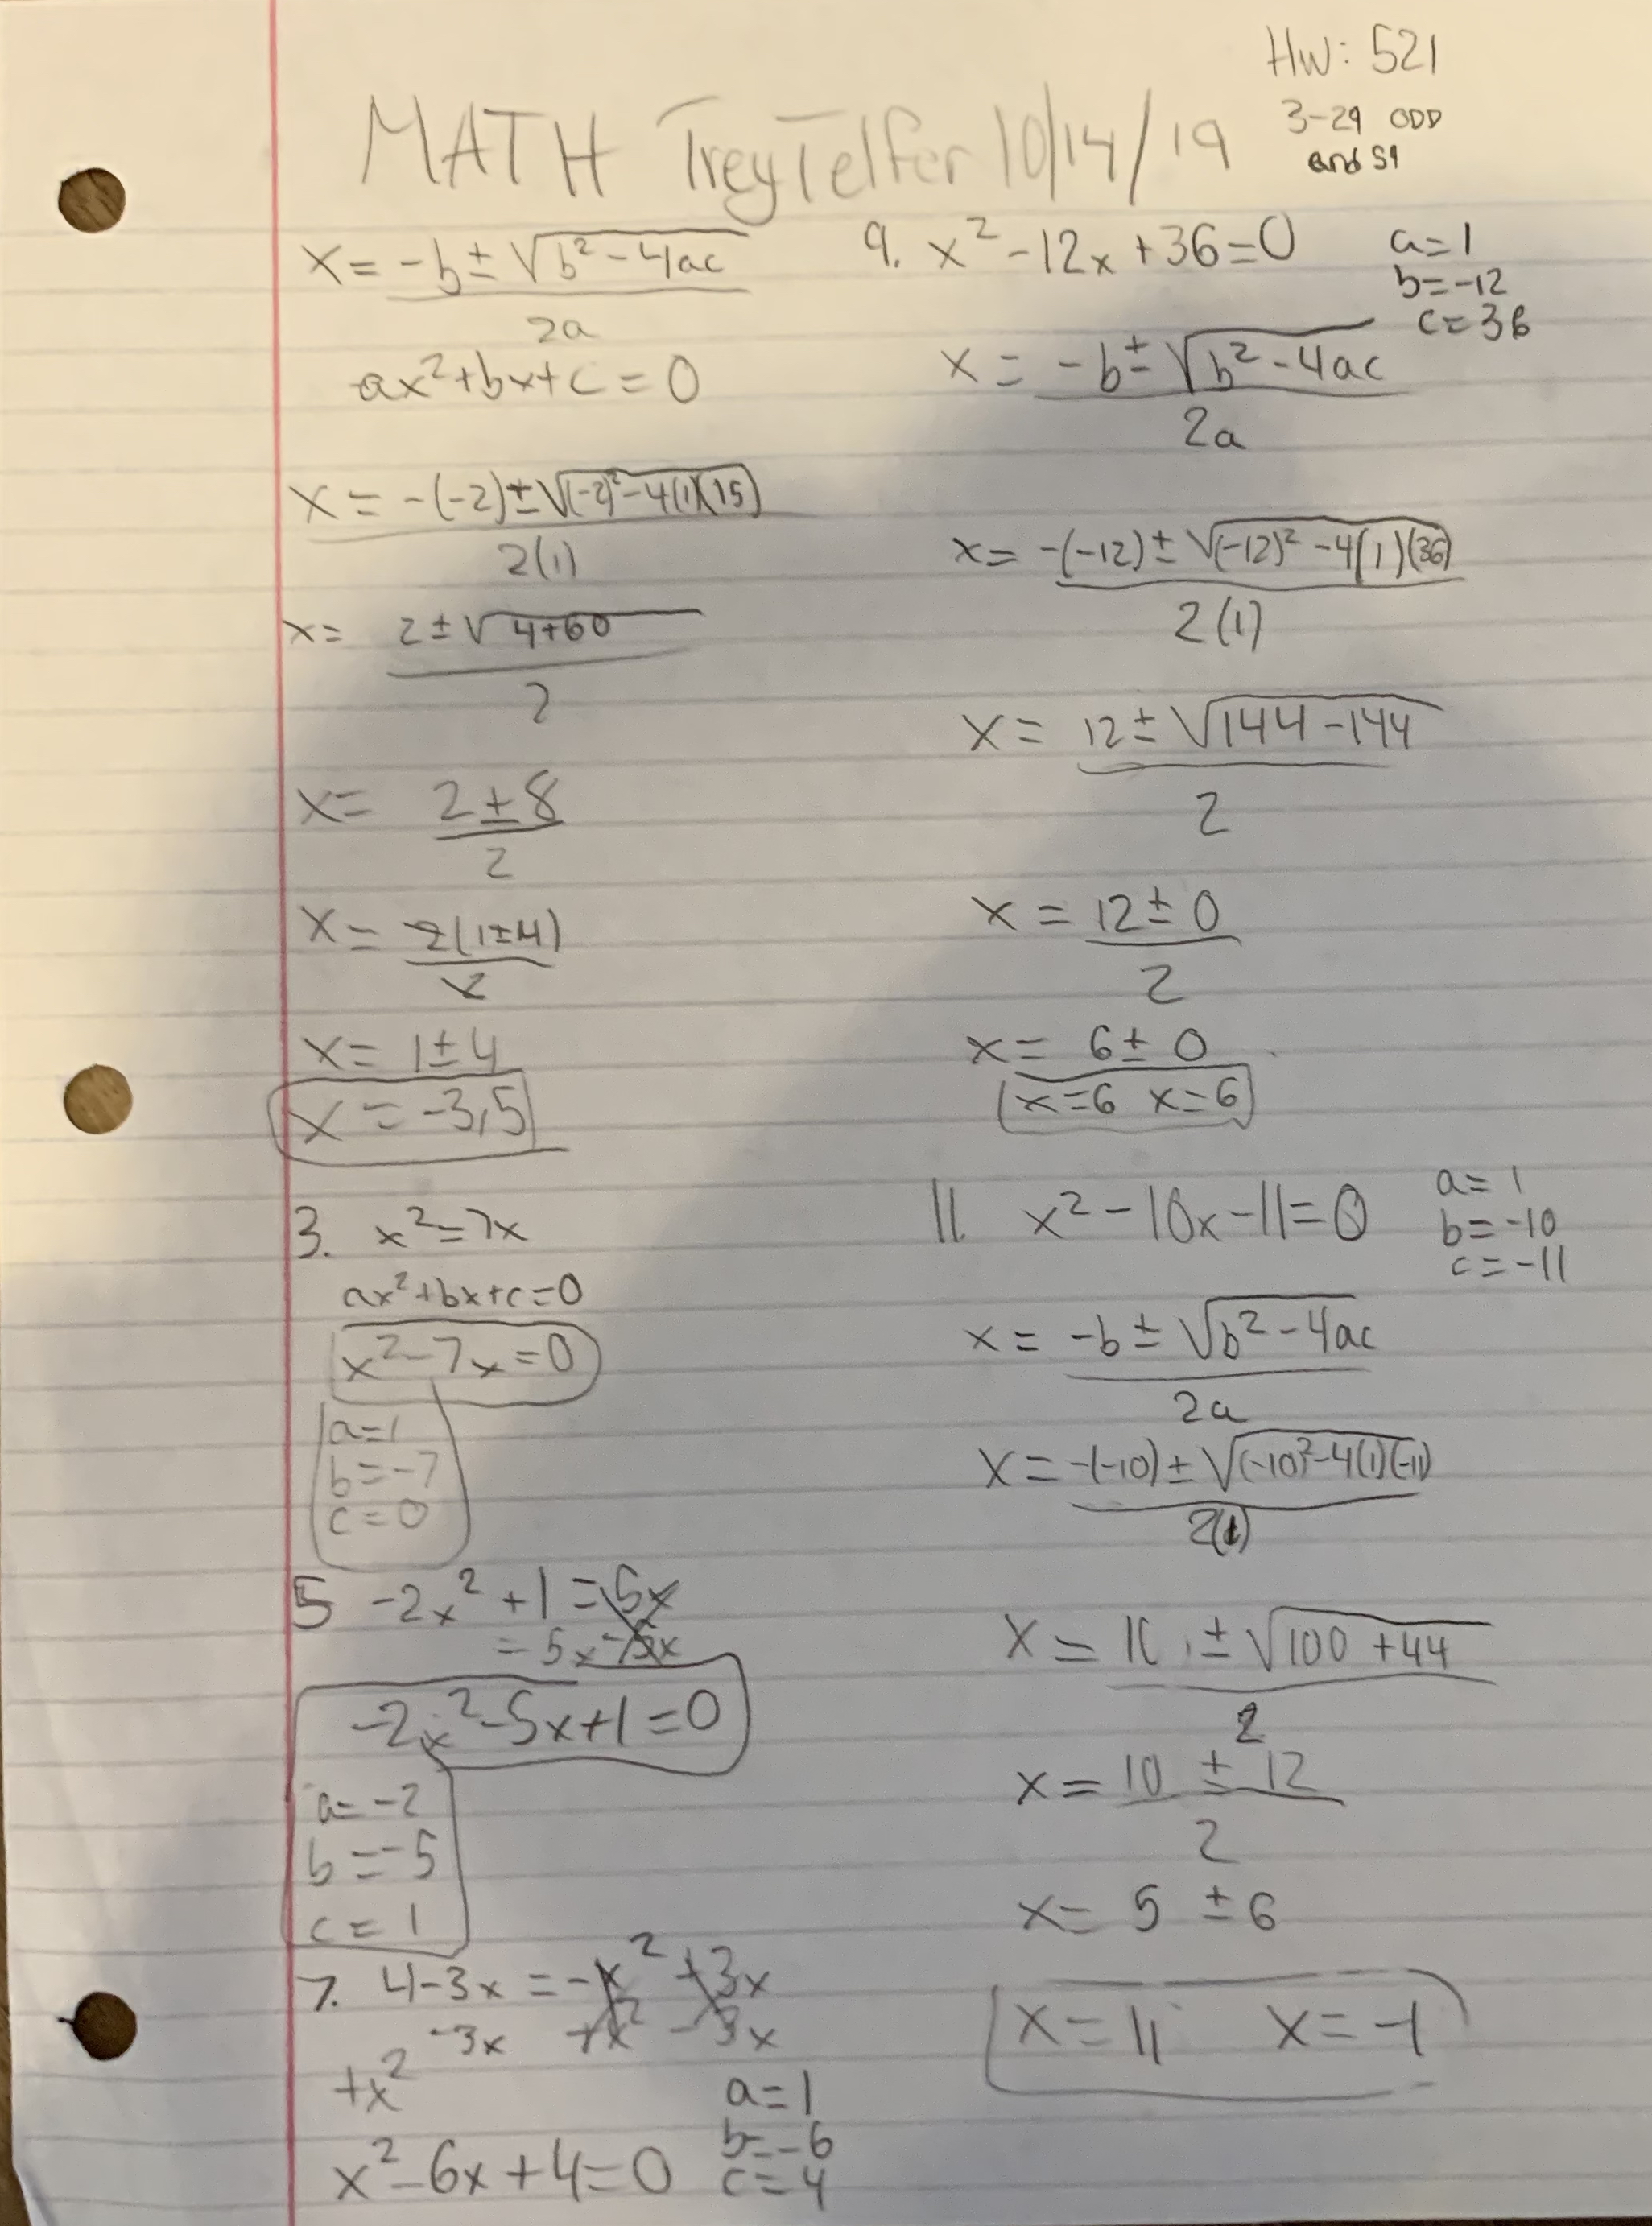 HW: 521
3-29 ODD
and 59
MATH Trey Telfer 10/14/19
x = -b ± √b² - 4ac
2a
ax² + bx + c = 0
x = -(-2) ± √(-2)² - 4(1)(15)
2(1)
x = 2 ± √4+60
2
x = 2 ± 8
2
x = 2(1±4)
2
x = 1 ± 4
x = -3,5
3. x² = 7x
ax² + bx + c = 0
x² - 7x = 0
a = 1
b = -7
c = 0
5 -2x² + 1 = 5x
= 5x - 5x
-2x² - 5x + 1 = 0
a = -2
b = -5
c = 1
7. 4 - 3x = -x² + 3x
-3x +x² - 3x
+x²
a = 1
b = -6
x² - 6x + 4 = 0 c = 4
9. x² - 12x + 36 = 0
a = 1
b = -12
c = 36
x = -b ± √b² - 4ac
2a
x = -(-12) ± √(-12)² - 4(1)(36)
2(1)
x = 12 ± √144 - 144
2
x = 12 ± 0
2
x = 6 ± 0
x = 6 x = 6
11. x² - 10x - 11 = 0
a = 1
b = -10
c = -11
x = -b ± √b² - 4ac
2a
x = -(-10) ± √(-10)² - 4(1)(-11)
2(1)
x = 10 ± √100 + 44
2
x = 10 ± 12
2
x = 5 ± 6
x = 11 x = -1